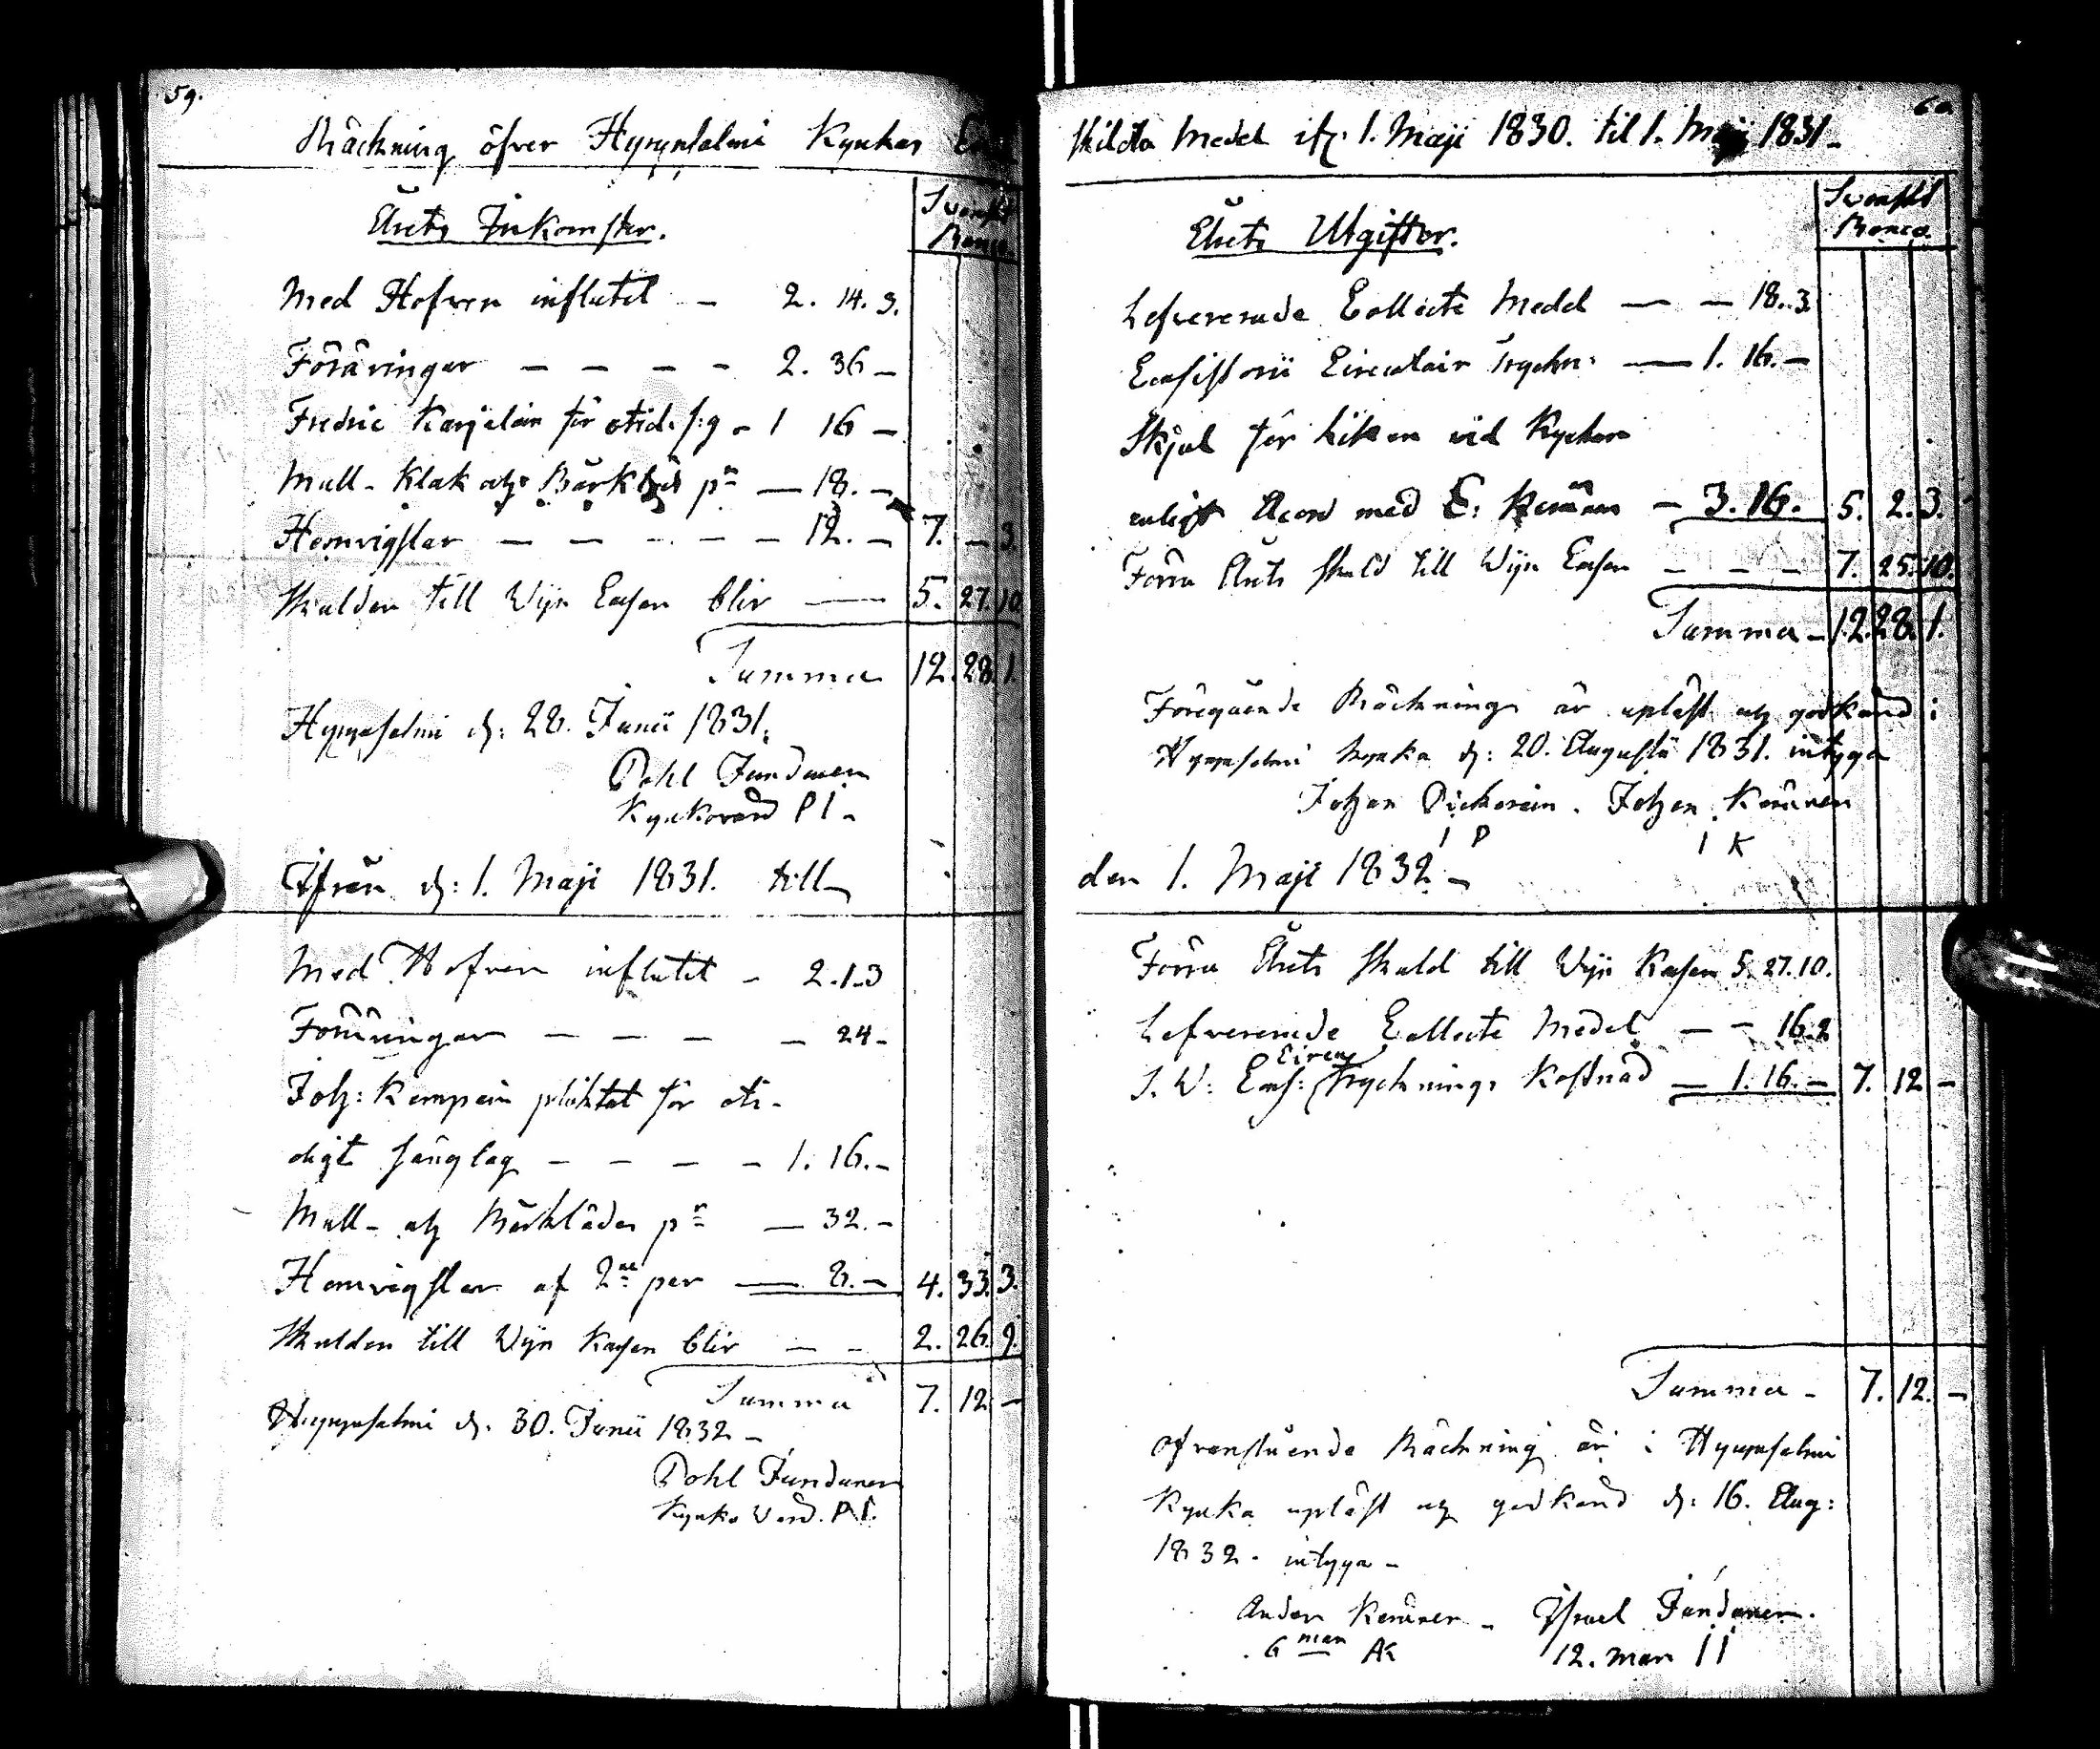 59.
Räckning öfver Hyrynsalmi Kyrkas
Årets Inkomster.
Svenskt
Banco
Med Hofven influtit — 2. 14. 3.
Föräringar — — — — 2. 36 —
Fredric Karjelain för otid. s:g — 1 16 —
Mull- Klak och Bårkläd pn — 18. —
Hemvigslar — — — — — 12. — 7. — 3.
Skulden till Wijn Cassan blir — 5. 27. 10
Summa 12. 28. 1.
Hyrynsalmi d: 28. Junii 1831.
Pohl Jundunen
Kyrkovärd P I —
Ifrån d: 1. Maji 1831. till
Med Hofven influtit — 2. 1. 3
Föräringar — — — — 24 —
Joh: Kempain pliktat för oti-
digt sänglag — — — — 1. 16. —
Mull- och Bårkläder pn — 32. —
Hemvigslar af 2ne par — 8. — 4. 33. 3.
Skulden till Wijn Kassan blir — — 2. 26. 9.
Summa 7. 12. —
Hyrynsalmi d: 30. Junii 1832 —
Pohl Jundunen
Kyrko Värd. P I.
60
skilda Medel ifr: 1. Maji 1830. til 1. Maji 1831 —
Årets Utgifter.
Svenskt
Banco
Lefvererade Collecte Medel — — 18. 3
Consistorii Circulair Tryckn: — 1. 16. —
Skjul för Liken vid Kyrkan
enligt Acord med C: Keränen — 3. 16. 5. 2. 3.
Förra Årets skuld till Wijn Cassan — — — 7. 25. 10.
Summa — 12. 28. 1.
Föregående Räckning är upläst och godkänd i
Hyrynsalmi Kyrka d: 20. Augusti 1831. intyga
Johan Pickarain. Johan Keränen
I P I K
den 1. Maji 1832 —
Förra Årets Skuld till Wijn Kassan 5. 27. 10.
Lefvererade Collecte Medel — — 16. 2
S. W: Cons: Circu Trycknings Kostnad — 1. 16. — 7. 12 —
Summa — 7. 12. —
Ofvanstående Räckning är i Hyrynsalmi
Kyrka upläst och godkänd d: 16. Aug:
1832. intyga —
Anders Keränen — Israel Jundunen.
6 man AK 12. man I I